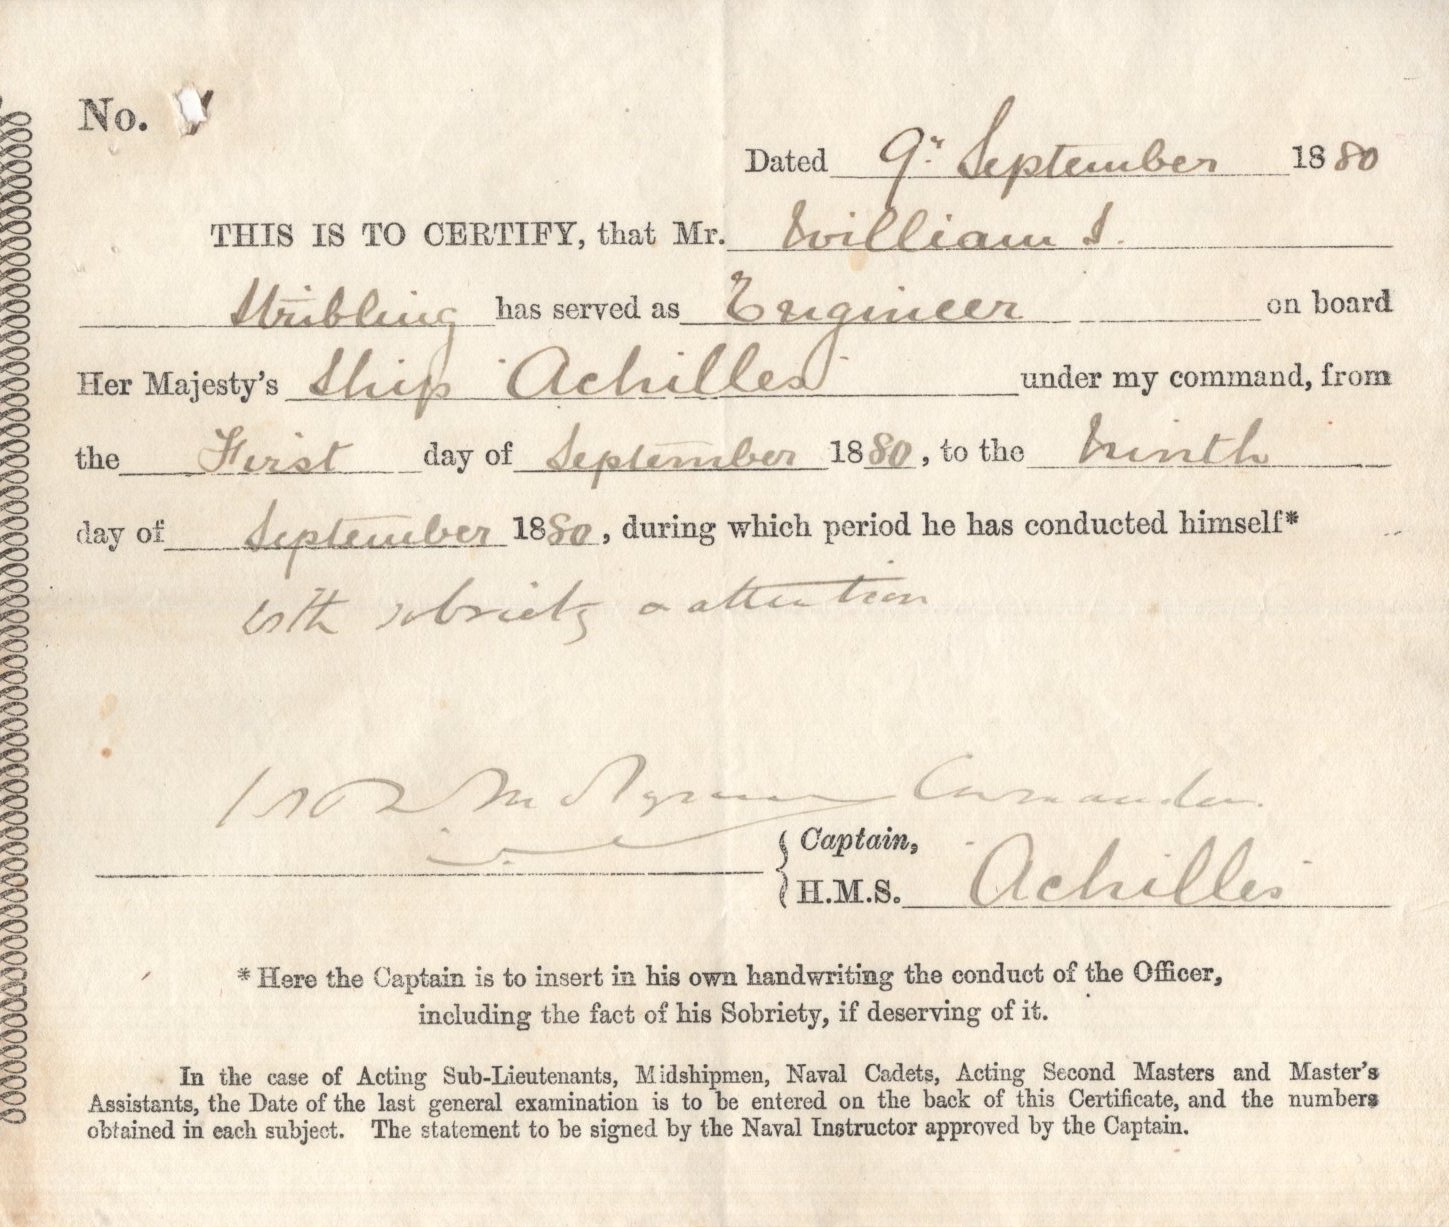 No.
Dated 9th September 1880
THIS IS TO CERTIFY, that Mr. William J.
Stribling has served as Engineer on board
Her Majesty's Ship "Achilles" under my command, from
the First day of September 1880, to the Ninth
day of September 1880, during which period he has conducted himself*
with sobriety & attention
Commander
Captain,
H.M.S. "Achilles"
* Here the Captain is to insert in his own handwriting the conduct of the Officer,
including the fact of his Sobriety, if deserving of it.
In the case of Acting Sub-Lieutenants, Midshipmen, Naval Cadets, Acting Second Masters and Master's
Assistants, the Date of the last general examination is to be entered on the back of this Certificate, and the numbers
obtained in each subject. The statement to be signed by the Naval Instructor approved by the Captain.